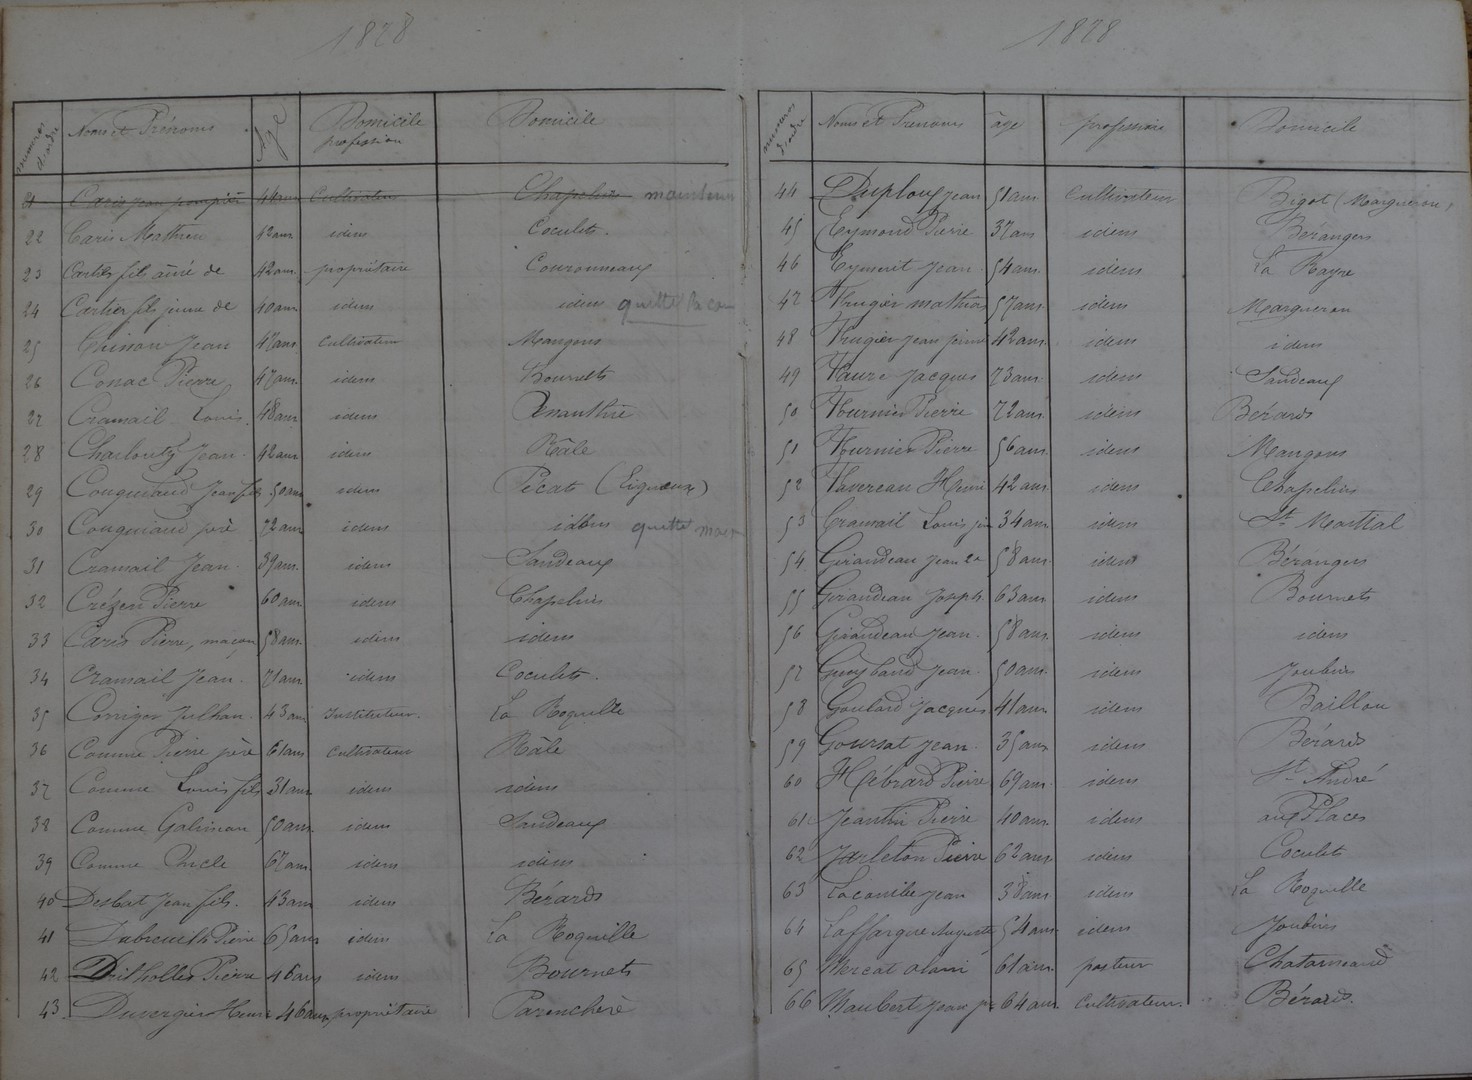 1878
numéros d'ordre Noms et Prénoms Age Domicile profession Domicile
21 Caris Jean pompier 44 ans Cultivateur Chapelins
22 Caris Mathieu 42 ans idem Coculets.
23 Cartier fils aîné de 42 ans propriétaire Couronneaux
24 Cartier fils jeune de 40 ans idem idem quitté
25 Jean 47 ans cultivateur Mangons
26 Conac Pierre 47 ans idem Bournets
27 Cramail Louis 48 ans idem
28 Jean 42 ans idem Râle
29 Jean fils 50 ans idem Picats
30 père 72 ans idem idem quitté
31 Cramail Jean 39 ans idem Sandeaux
32 Pierre 60 ans idem Chapelins
33 Caris Pierre, maçon 58 ans idem idem
34 Cramail Jean 71 ans idem Coculets.
35 43 ans Instituteur. La Roquille
36 Comme Pierre père 61 ans cultivateur Râle
37 Comme Louis fils 31 ans idem idem
38 Comme 50 ans idem Sandeaux
39 Comme Oncle 67 ans idem idem
40 Desbat Jean fils. 43 ans idem Bérards
41 Dubreuilh Pierre 65 ans idem La Roquille
42 Pierre 46 ans idem Bournets
43 Duvergier Henri 46 ans propriétaire Parenchère
1878
numéros d'ordre Noms et Prénoms âge profession Domicile
44 Duplouy Jean 51 ans Cultivateur Bigot (Margueron)
45 Eymond Pierre 37 ans idem Bérangers
46 Jean 54 ans idem La Rayre
47 Frugier mathias 57 ans idem Margueron
48 Frugier Jean 42 ans idem idem
49 Faure Jacques 73 ans idem Sandeaux
50 Fournier Pierre 72 ans idem Bérards
51 Fournier Pierre 56 ans idem Mangons
52 Favereau Henri 42 ans idem Chapelins
53 Cramail Louis 34 ans idem St Martial
54 Girandeau Jean 58 ans idem Bérangers
55 Girandeau Joseph 63 ans idem Bournets
56 Girandeau Jean 58 ans idem idem
57 Jean 50 ans idem Joubins
58 Goulard Jacques 41 ans idem Baillou
59 Goursat Jean 35 ans idem Bérards
60 Hébrard Pierre 69 ans idem St André
61 Jeantin Pierre 40 ans idem aux Places
62 Jarleton Pierre 62 ans idem Coculets
63 Jean 38 ans idem La Roquille
64 Laffargue Auguste 54 ans idem Joubins
65 Mercat 61 ans pasteur
66 Maubert Jean 64 ans Cultivateur. Bérards.